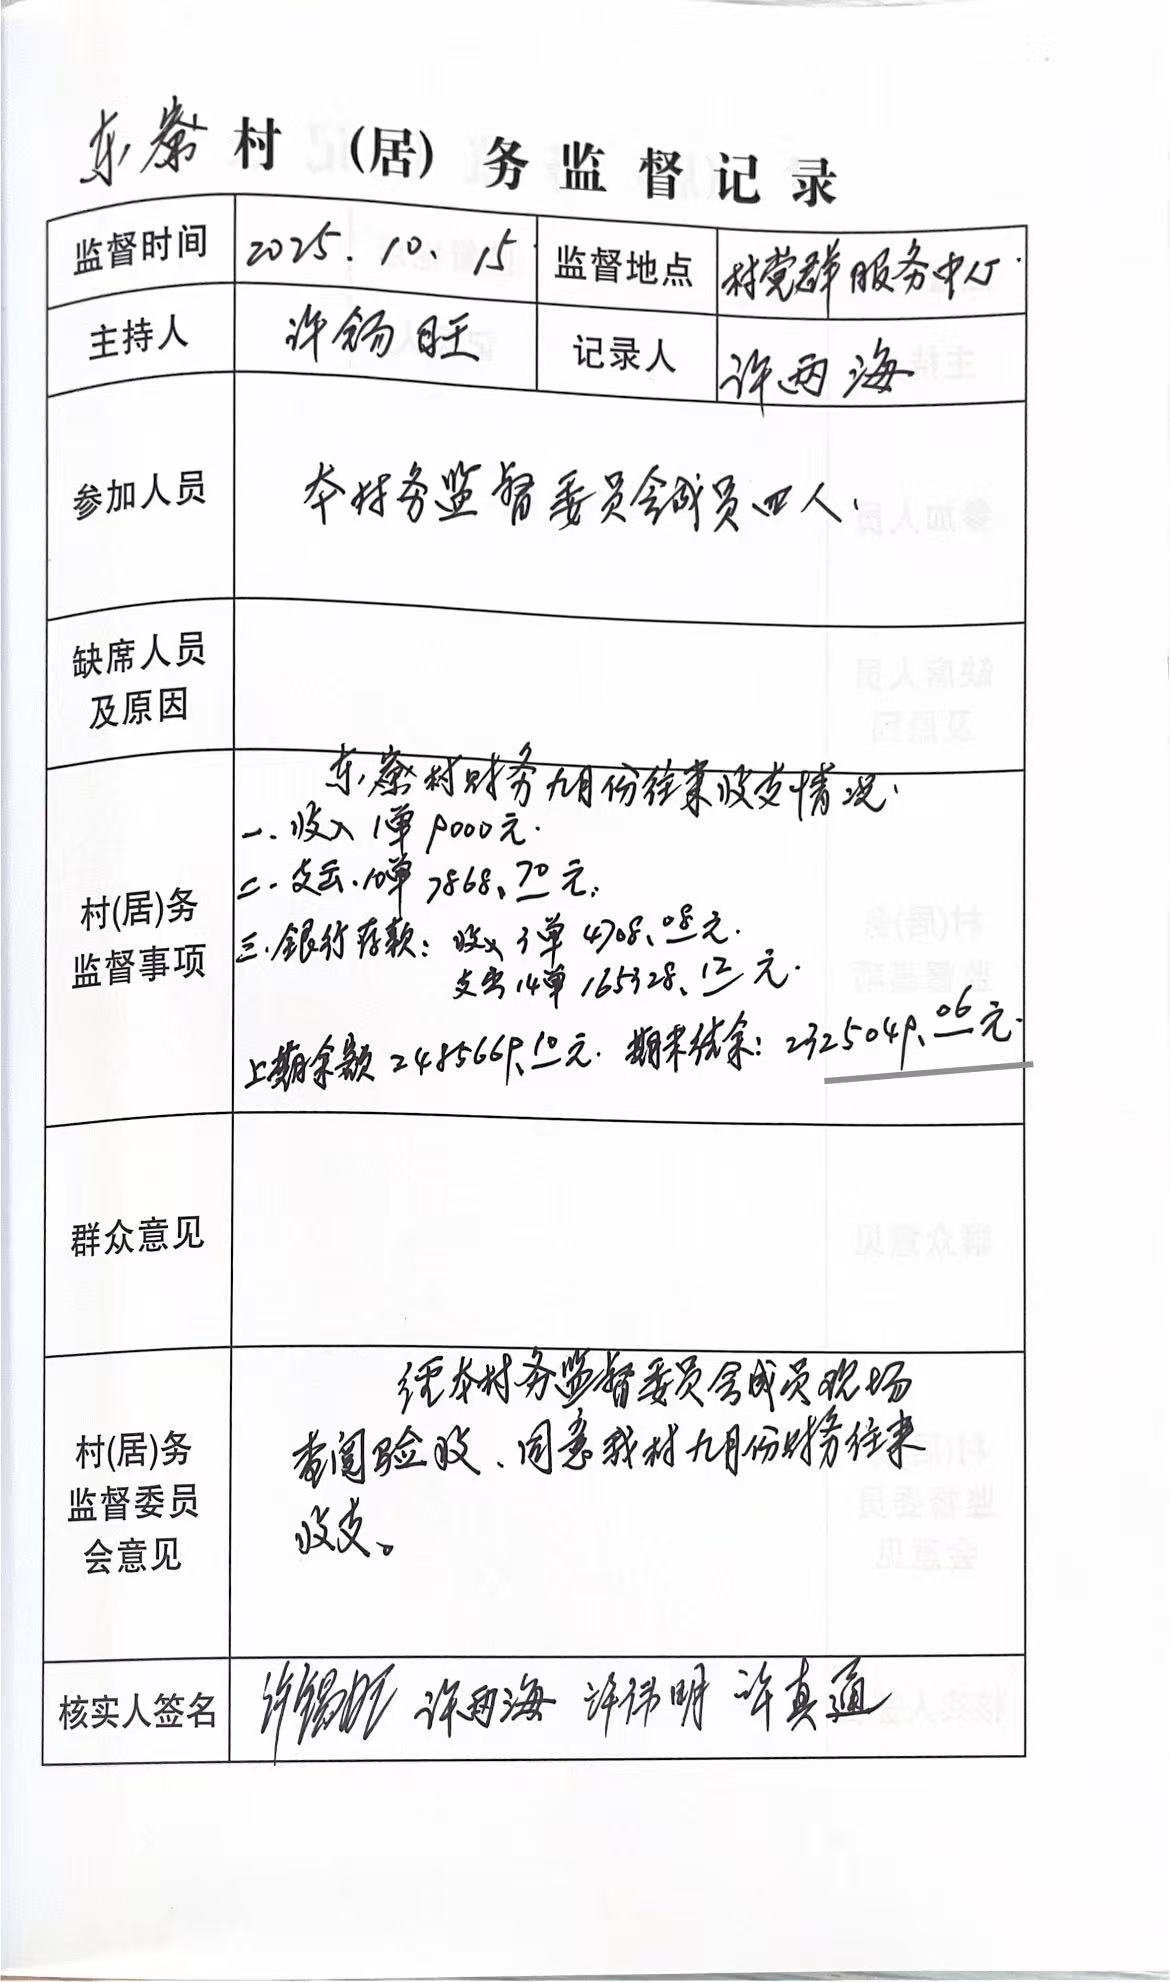 东寮村(居)务监督记录
监督时间 2025.10.15. 监督地点 村党群服务中心.
主持人 许锡旺 记录人 许两海
参加人员 本村务监督委员会成员四人.
缺席人员
及原因
东寮村财务九月份往来收支情况.
一.收入1单9000元.
二.支出.10单7868.70元.
村(居)务
监督事项
三.银行存款:收入3单4708.08元.
支出14单165328.12元.
上期余额2485669.10元. 期末结余:2325049.06元.
群众意见
村(居)务
监督委员
会意见
经本村务监督委员会成员现场
查阅验收、同意我村九月份财务往来
收支。
核实人签名 许锡旺 许两海 许伟明 许真通